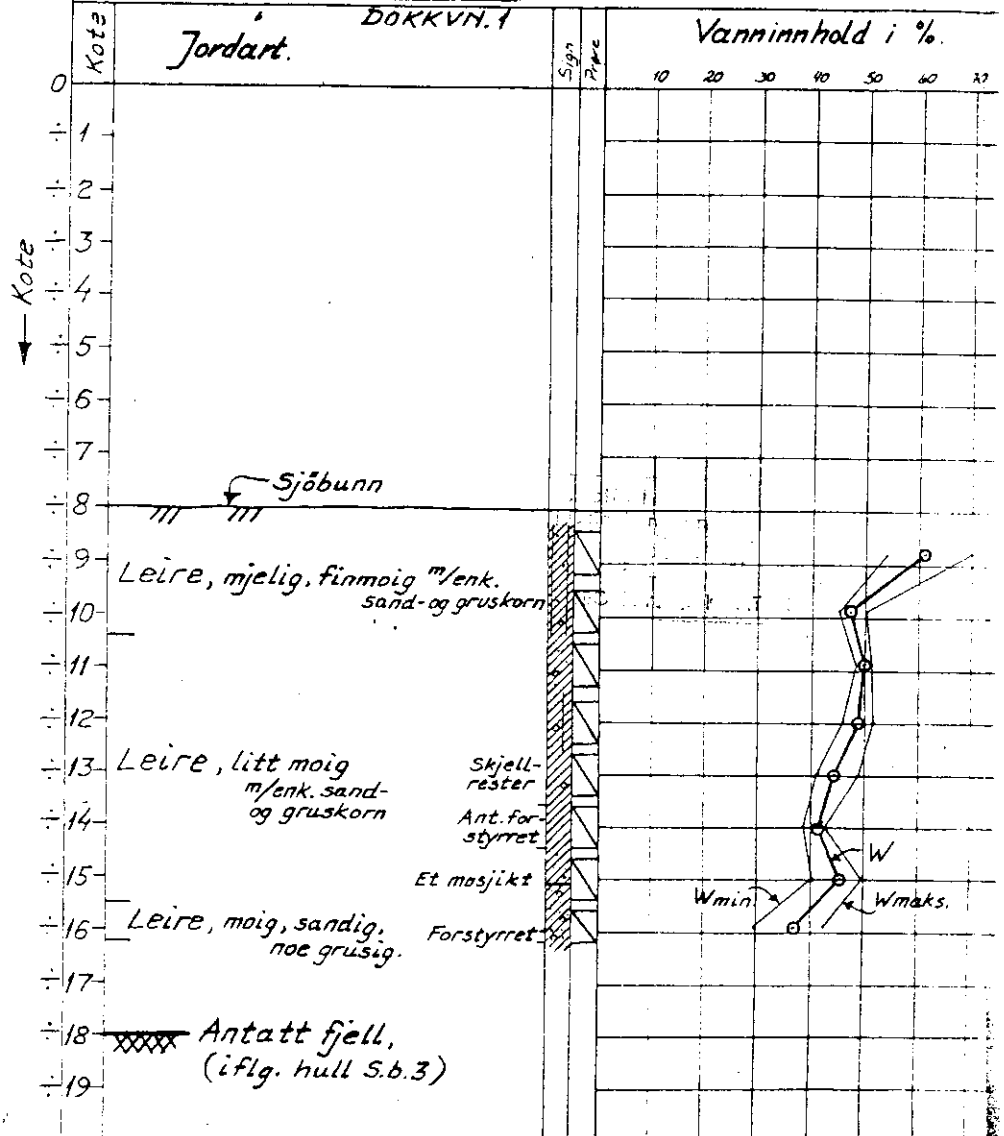 DOKKVN.1
Kote
Jordart.
Sign
Prøve
Vanninnhold i %.
10 20 30 40 50 60
0
÷1
÷2
÷3
÷4
÷5
÷6
÷7
÷8
÷9
÷10
÷11
÷12
÷13
÷14
÷15
÷16
÷17
÷18
÷19
Kote
Sjöbunn
Leire, mjelig, finmoig m/enk.
sand- og gruskorn
Leire, litt moig
m/enk. sand-
og gruskorn
Skjell-
rester
Ant. for-
styrret
Et mosjikt
Leire, moig, sandig,
noe grusig.
Forstyrret
W
Wmin.
Wmaks.
Antatt fjell,
(iflg. hull S.b.3)